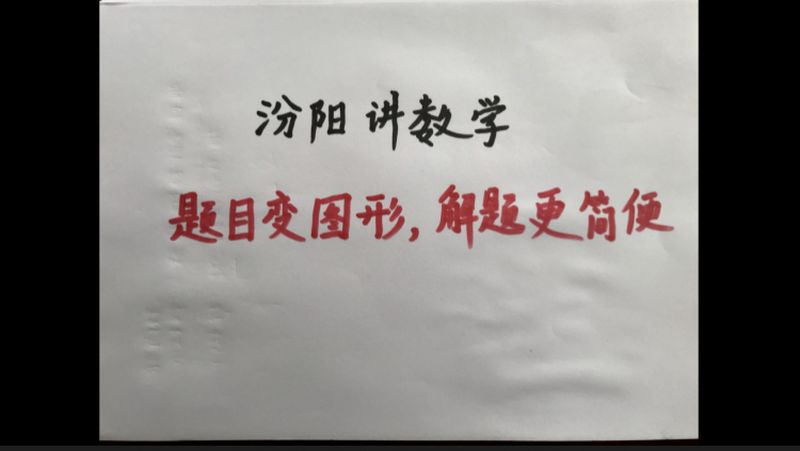 汾阳讲数学
题目变图形,解题更简便